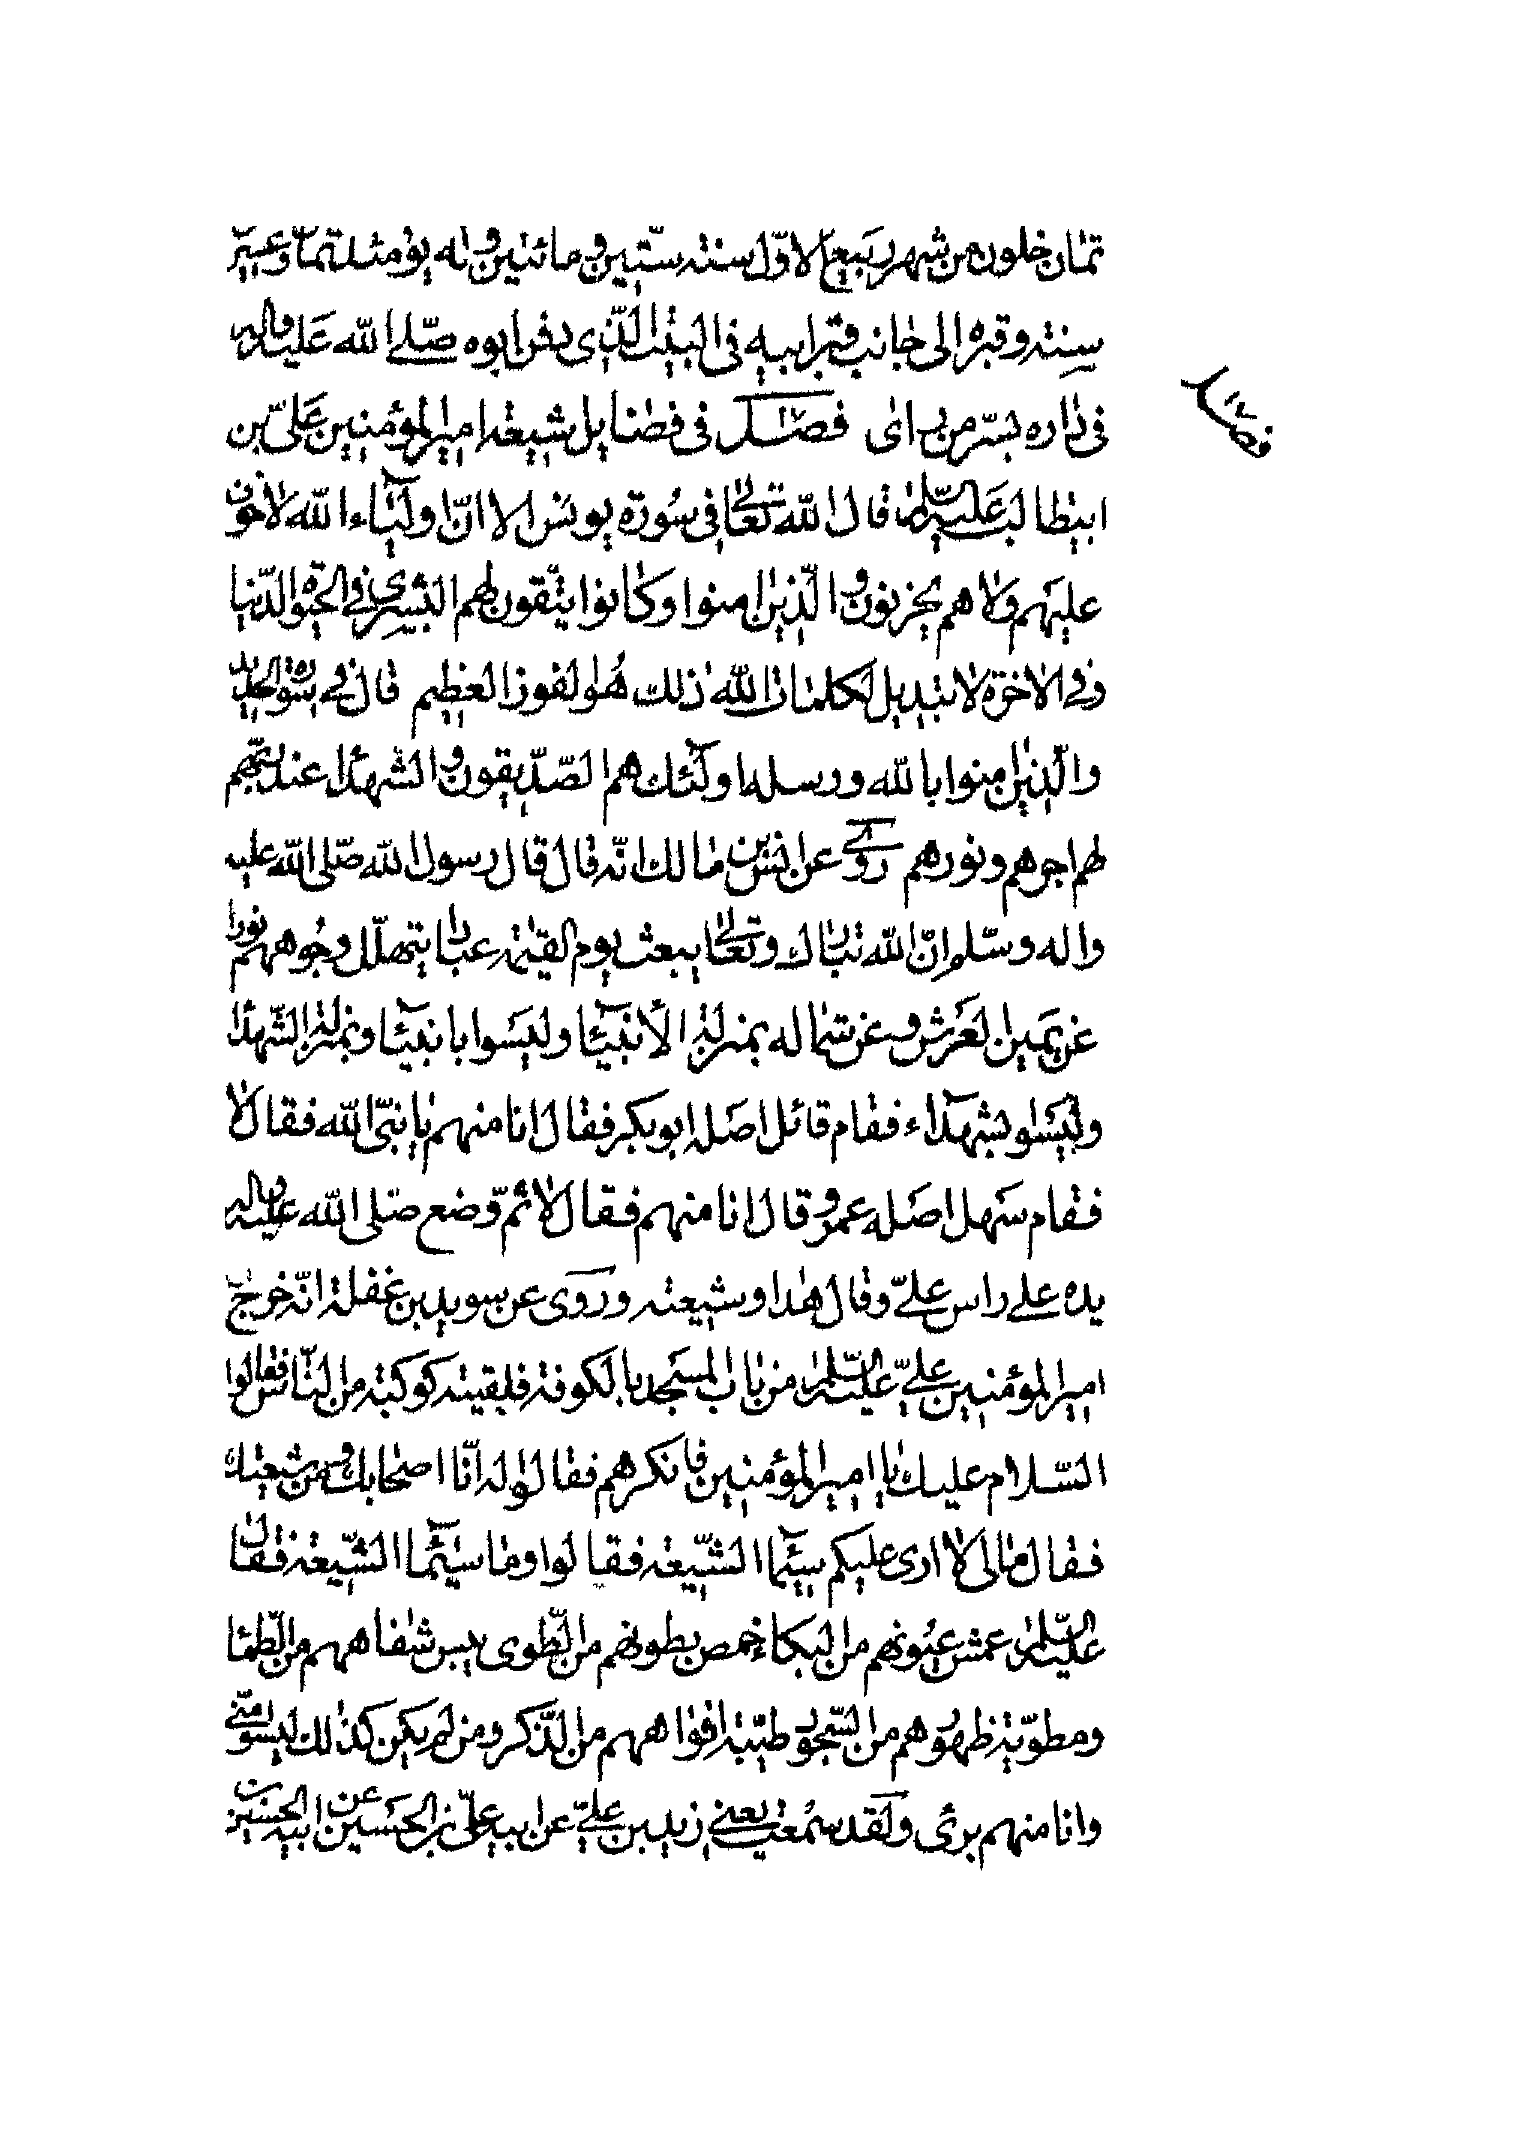 ثمان خلون من شهر ربيع الاوّل سنته ستّين و مائتين و له يومئذ ثمان وعشر
سنته و قبره الى جانب قبر ابيه في البيت الّذي دفن ابوه صلّى الله عليه واله
في داره بسرّ من راى فصل في فضايل شيعة امير المؤمنين عليّ بن
ابيطالب عليه السّلم قال الله تعالى في سورة يونس الا انّ اوليآء الله لا خوف
عليهم ولا هم يحزنون و الّذين امنوا وكانوا يتّقون لهم البشرى في الحيوة الدّنيا
وفي الاخرة لا تبديل لكلمات الله ذلك هو لفوز العظيم قال في سورة الحديد
والّذين امنوا بالله ورسله اولٓئك هم الصّدّيقون و الشّهدآ عند ربّهم
لهم اجرهم ونورهم روى عن انس بن مالك انّه قال قال رسول الله صلّى الله عليه
واله وسلّم انّ الله تبارك وتعالى يبعث يوم القيمة عبادا يتهلّل وجوههم نورا
عن يمين العرش و عن شماله بمنزلة الأنبيٓا وليسوا بانبيٓا وبمنزلة الشّهدا
وليسوا بشهدآء فقام قائل اصله ابوبكر فقال انا منهم يا نبيّ الله فقال لا
فقام سهل اصله عمر و قال انا منهم فقال لا ثمّ وضع صلى الله عليه واله
يده على راس عليّ وقال هذا وشيعته وروى عن سويد بن غفلة انّه خرج
امير المؤمنين عليّ عليه السّلم من باب المسجد بالكوفة فلقيته كوكبة من النّاس فقالوا
السّلام عليك يا امير المؤمنين فانكرهم فقالوا له انّا اصحابك ومن شيعتك
فقال مالى لا ارى عليكم سيٓما الشّيعة فقالوا وما سيٓما الشّيعة فقال
عليه السّلم عمش عيونهم من البكاء خمص بطونهم من الطّوى يبس شفاههم من الظّما
ومطويّة ظهورهم من السّجود طيّبة افواههم من الذّكر ومن لم يكن كذلك ليسوا منّي
وانا منهم برئ ولقد سمعت يعني زيد بن عليّ عن ابيه عليّ بن الحسين عن ابيه الحسين
فصل ١٧